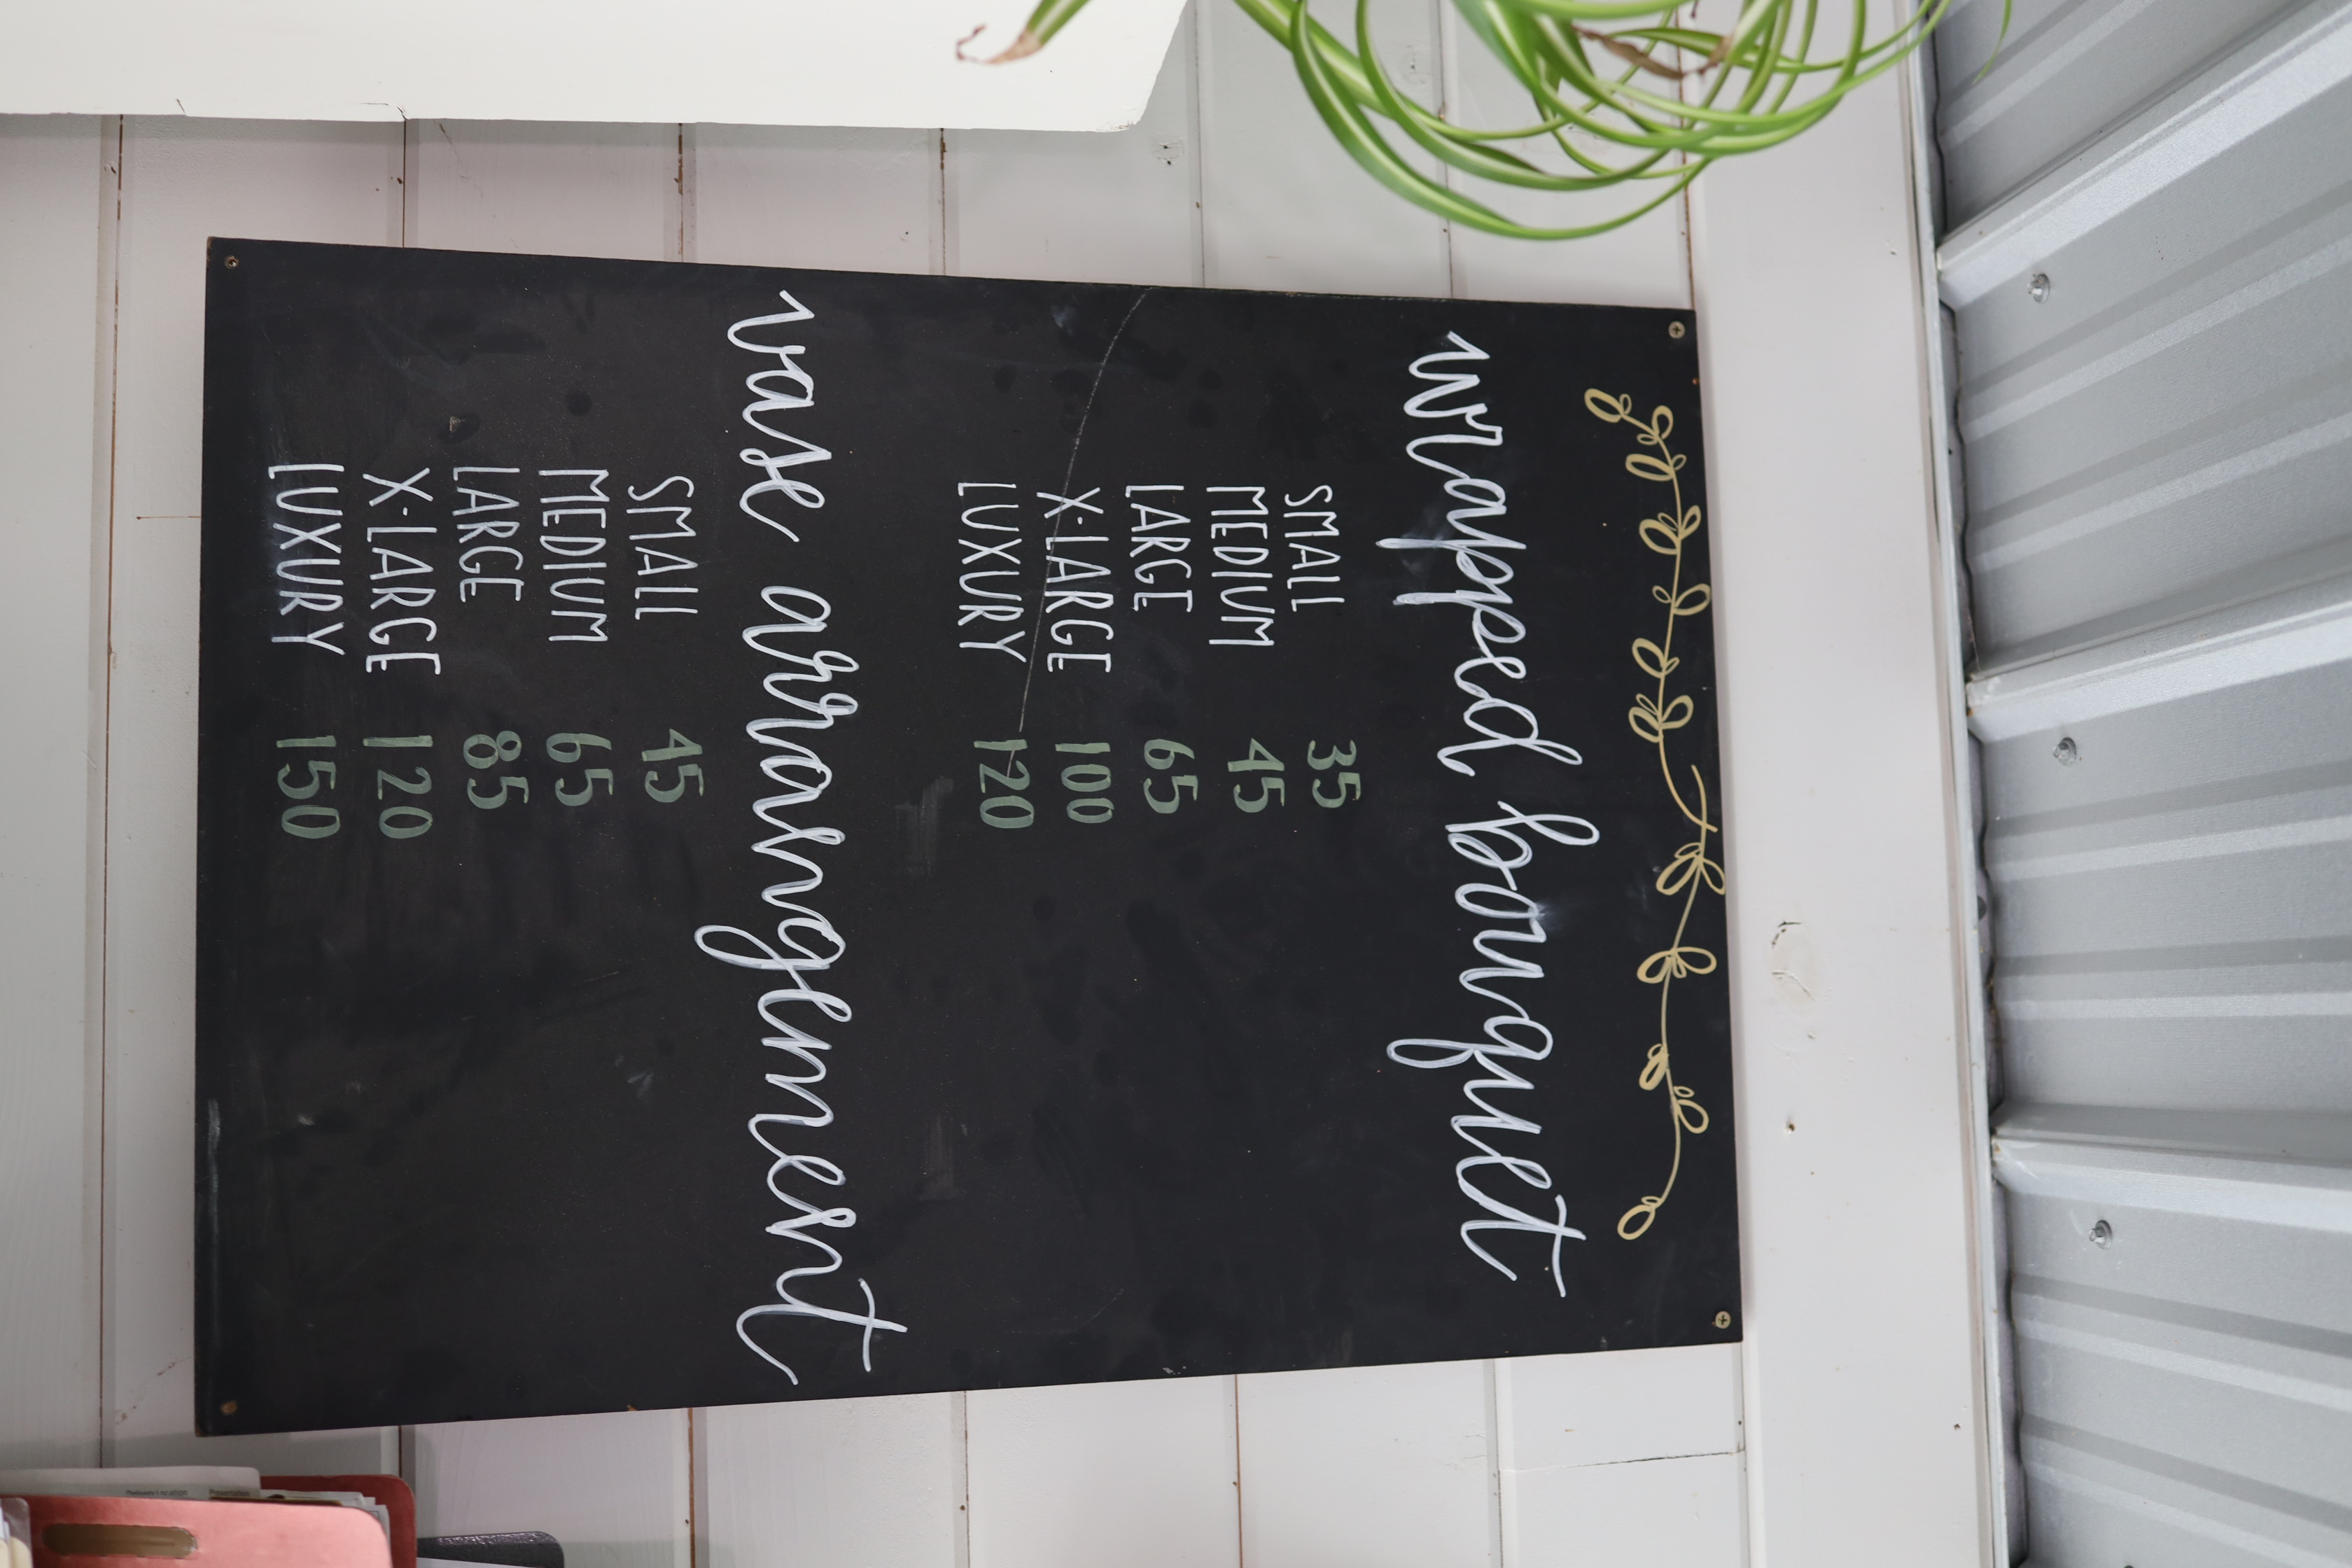 wrapped bouquet
SMALL 35
MEDIUM 45
LARGE 65
X-LARGE 100
LUXURY 120
vase arrangement
SMALL 45
MEDIUM 65
LARGE 85
X-LARGE 120
LUXURY 150
Presentation